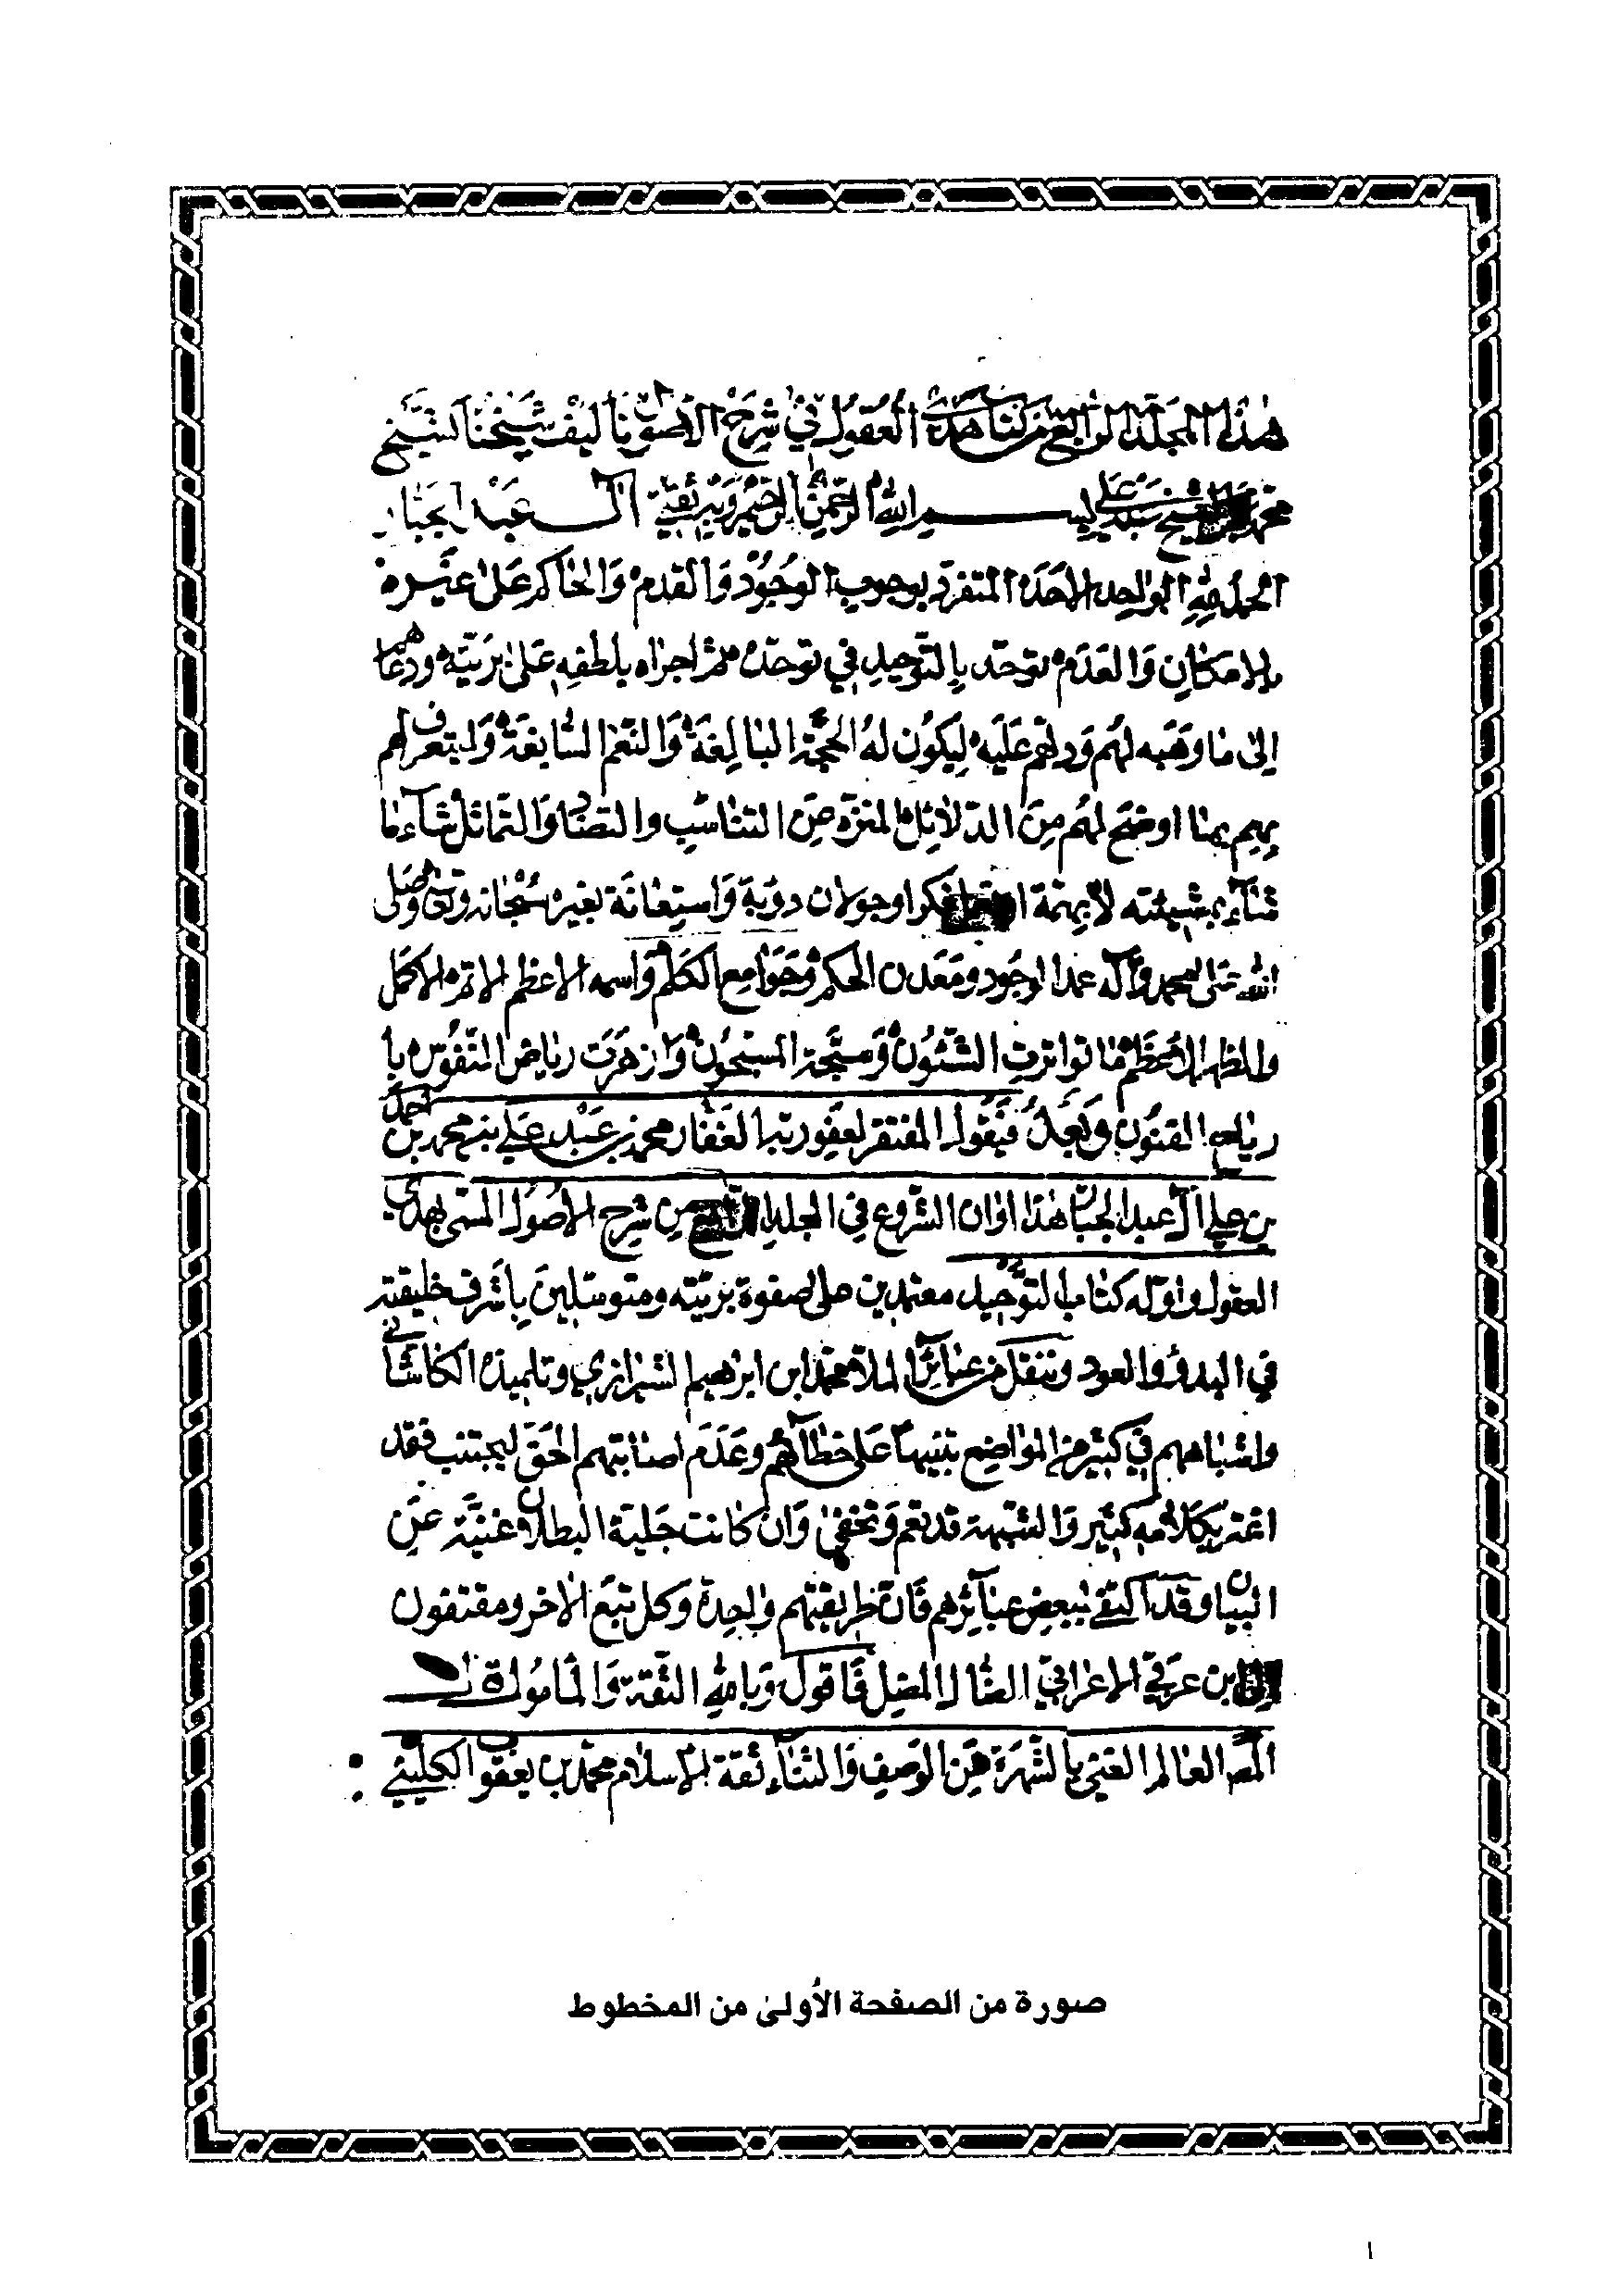 هذا المجلد الرابع من كتاب هدى العقول في شرح الأصول تأليف شيخنا الشيخ
محمد بن الشيخ عبد علي بسم الله الرحمن الرحيم وبه ثقتي آل عبد الجبار
الحمد لله الواحد الأحد المتفرد بوجوب الوجود والقدم والحاكم على غيره
بالإمكان والعدم توحد بالتوحيد في توحده ثم اجراه بلطفه على بريته ودعاهم
الى ما وهبه لهم ودلهم عليه ليكون له الحجة البالغة والنعم السابغة وليتعرف لهم
بهم بما اوضح لهم من الدلائل المنزه عن التناسب والتضاد والتماثل شاء ما
شاء بمشيئته لا بهمة فكر او جولان روية واستعانة بغيره سبحانه وتعالى وصلى
الله على محمد وآله عمد الوجود ومعدن الحكم وجوامع الكلم واسمه الاعظم الاتم الاكمل
والمظهر الاعظم ما تواترت الشئون وازهرت رياض النفوس با
رياح الفنون وبعد فيقول المفتقر لعفو ربه الغفار محمد بن عبد علي بن محمد بن احمد
بن علي آل عبد الجبار هذا اوان الشروع في المجلد الرابع من شرح الأصول المسمى بهدي
العقول واوله كتاب التوحيد معتمدين على صفوة بريته ومتوسلين بأشرف خليقته
في البدؤ والعود وننقل من عبائر الملا محمد ابن ابراهيم الشيرازي وتلميذه الكاشاني
واشباههم في كثير من المواضع تنبيها على خطائهم وعدم اصابتهم الحق ليجتنب فقد
اغتر بكلامهم كثير والشبهة قد تعم وتخفى وان كانت جلية البطلان غنية عن
البيان وقد اكتفي ببعض عبائرهم فان طريقتهم واحدة وكل تبع الاخر ومقتفون
ابن عربي الاعرابي الضال المضل فأقول وبالله الثقة والمأمول قال
المصـ العالم الغني بالشهرة عن الوصف والثناء ثقة الاسلام محمد بن يعقوب الكليني
صورة من الصفحة الأولىٰ من المخطوط